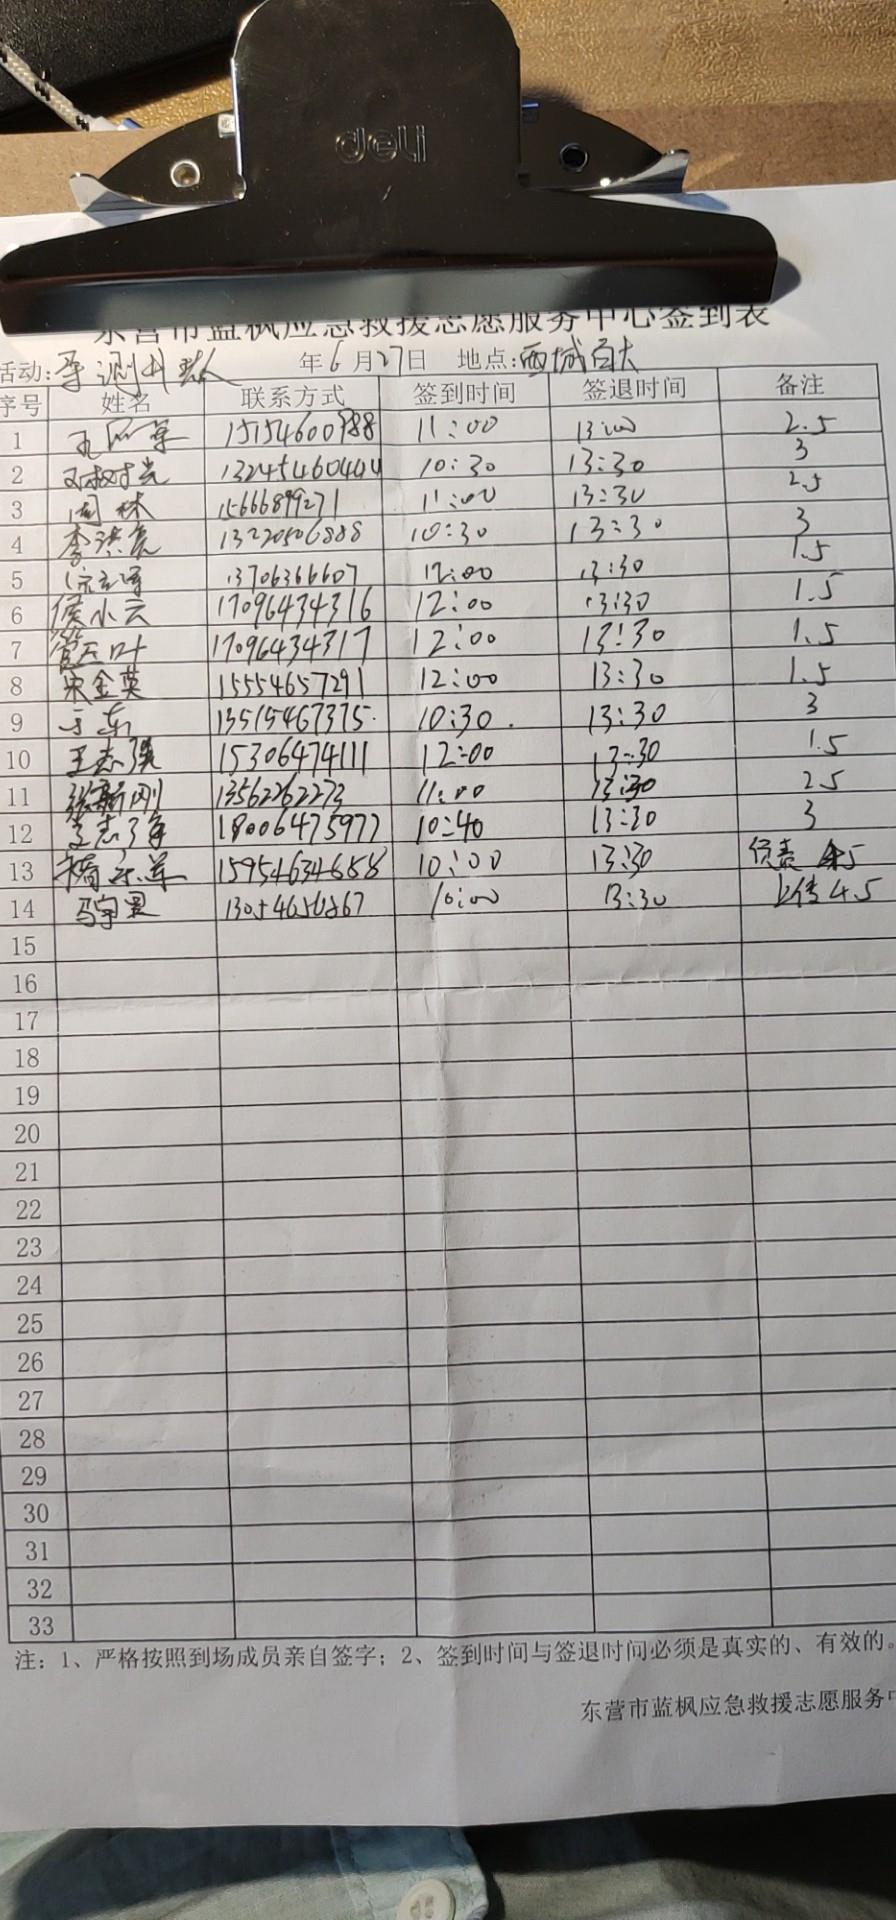 deli
东营市蓝枫应急救援志愿服务中心签到表
活动: 年6月27日 地点:西城百大
序号 姓名 联系方式 签到时间 签退时间 备注
1 15154600988 11:00 13:00 2.5
2 13245460444 10:30 13:30 3
3 周林 15666899271 11:00 13:30 2.5
4 李洪亮 13220506888 10:30 13:30 3
5 13706366607 12:00 13:30 1.5
6 侯小云 17096434316 12:00 13:30 1.5
7 管玉叶 17096434317 12:00 13:30 1.5
8 宋金英 15554657291 12:00 13:30 1.5
9 于东 13515467375 10:30 13:30 3
10 王志强 15306474111 12:00 13:30 1.5
11 张新刚 13562262273 11:00 13:30 2.5
12 18006475977 10:40 13:30 3
13 15954634688 10:00 13:30 负责
14 10:00 13:30 上传 4.5
15
16
17
18
19
20
21
22
23
24
25
26
27
28
29
30
31
32
33
注:1、严格按照到场成员亲自签字;2、签到时间与签退时间必须是真实的、有效的。
东营市蓝枫应急救援志愿服务中